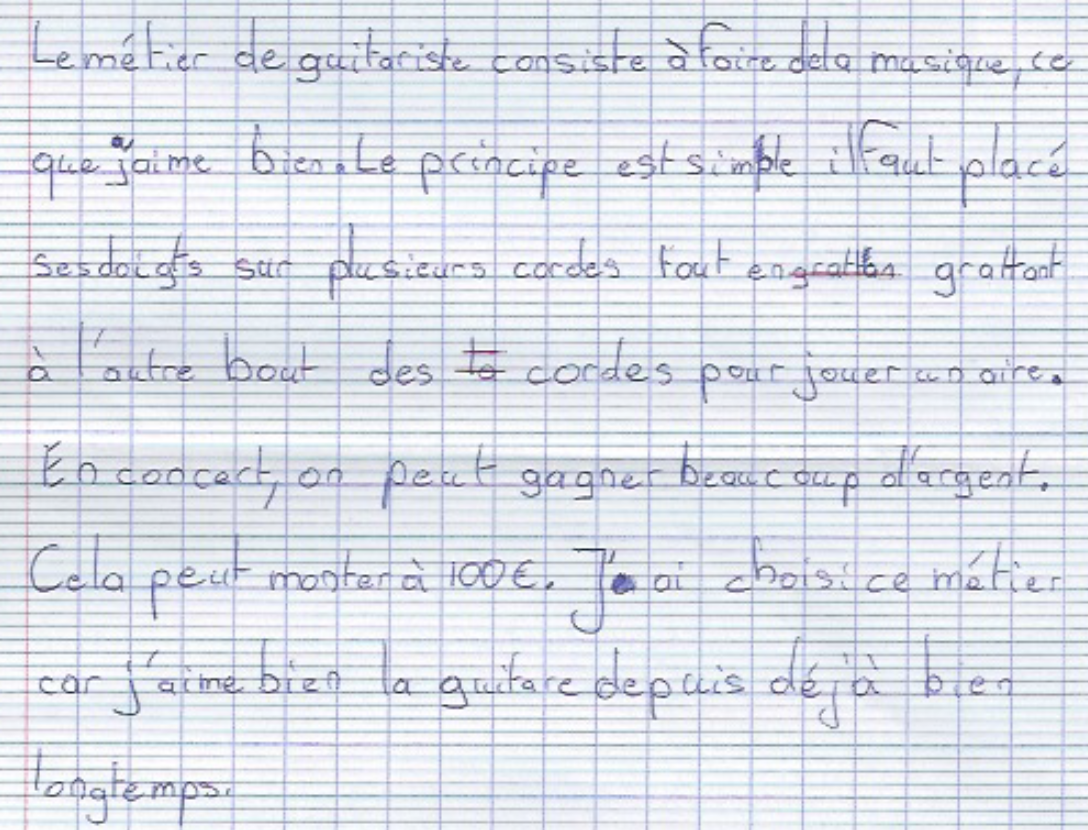 Le métier de guitariste consiste à faire de la musique, ce
que j'aime bien. Le principe est simple il faut placé
ses doigts sur plusieurs cordes tout en grattant
à l'autre bout des cordes pour jouer un aire.
En concert, on peut gagner beaucoup d'argent.
Cela peut monter à 100€. J'ai choisi ce métier
car j'aime bien la guitare depuis déjà bien
longtemps.